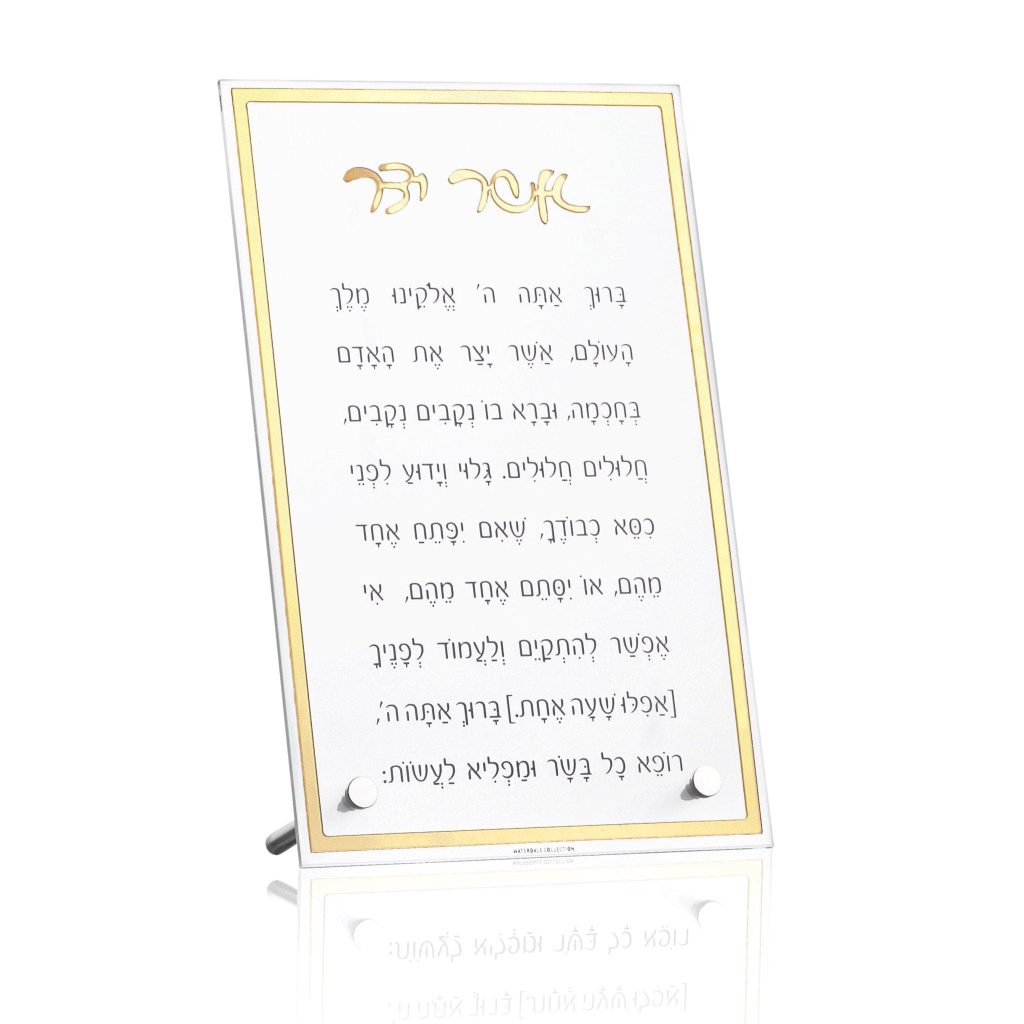 אשר יצר
בָּרוּךְ אַתָּה ה' אֱלֹקֵינוּ מֶלֶךְ
הָעוֹלָם, אֲשֶׁר יָצַר אֶת הָאָדָם
בְּחָכְמָה, וּבָרָא בוֹ נְקָבִים נְקָבִים,
חֲלוּלִים חֲלוּלִים. גָּלוּי וְיָדוּעַ לִפְנֵי
כִסֵּא כְבוֹדֶךָ, שֶׁאִם יִפָּתֵחַ אֶחָד
מֵהֶם, אוֹ יִסָּתֵם אֶחָד מֵהֶם, אִי
אֶפְשַׁר לְהִתְקַיֵּם וְלַעֲמוֹד לְפָנֶיךָ
[אַפִלּוּ שָׁעָה אֶחָת.] בָּרוּךְ אַתָּה ה',
רוֹפֵא כָל בָּשָׂר וּמַפְלִיא לַעֲשׂוֹת:
WATERDALE COLLECTION